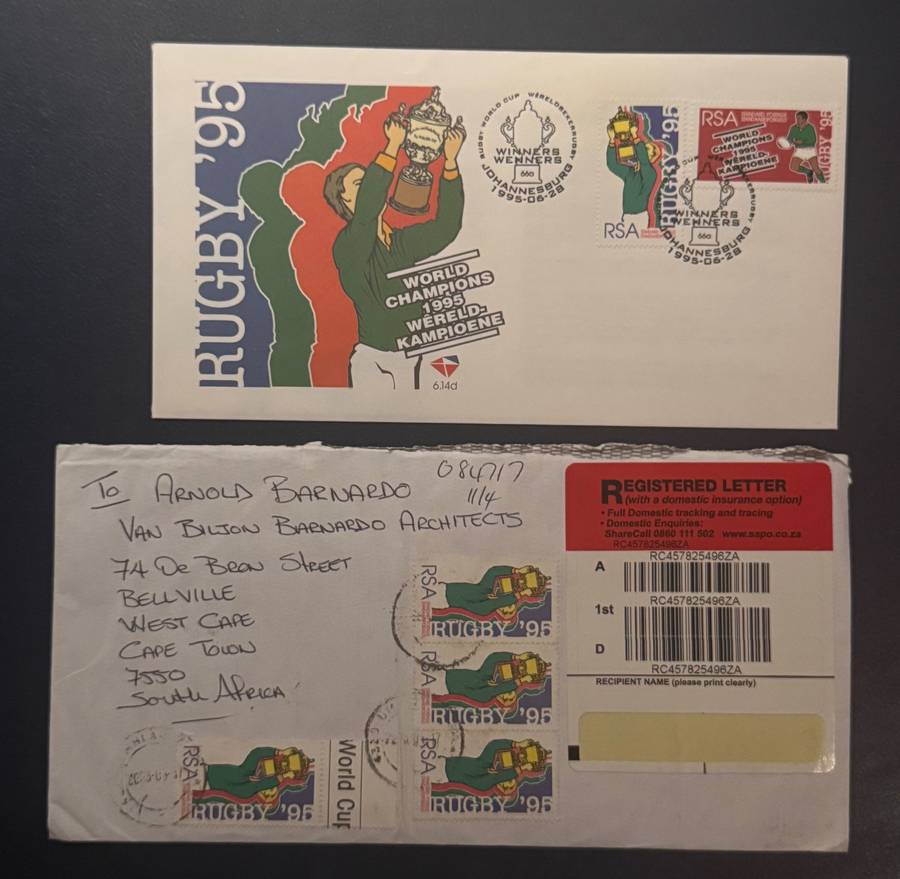 RUGBY '95
WORLD
CHAMPIONS
1995
WÊRELD-
KAMPIOENE
6.14d
RUGBY WORLD CUP WÊRELDBEKERRUGBY
WINNERS
WENNERS
66a
JOHANNESBURG
1995-06-28
RSA
RUGBY '95
RSA
STANDARD POSTAGE
STANDAARDPOSGELD
WORLD
CHAMPIONS
1995
WÊRELD-
KAMPIOENE
RUGBY '95
WINNERS
WENNERS
66a
JOHANNESBURG
1995-06-28
To ARNOLD BARNARDO
VAN BILJON BARNARDO ARCHITECTS
74 De BRON STREET
BELLVILLE
WEST CAPE
CAPE TOWN
7550
South Africa
084717
11/4
REGISTERED LETTER
(with a domestic insurance option)
• Full Domestic tracking and tracing
• Domestic Enquiries:
ShareCall 0860 111 502 www.sapo.co.za
RC457825496ZA
RC457825496ZA
A
RC457825496ZA
1st
D
RC457825496ZA
RECIPIENT NAME (please print clearly)
RSA
RUGBY '95
RSA
RUGBY '95
RSA
RUGBY '95
RSA
RUGBY '95
World Cup